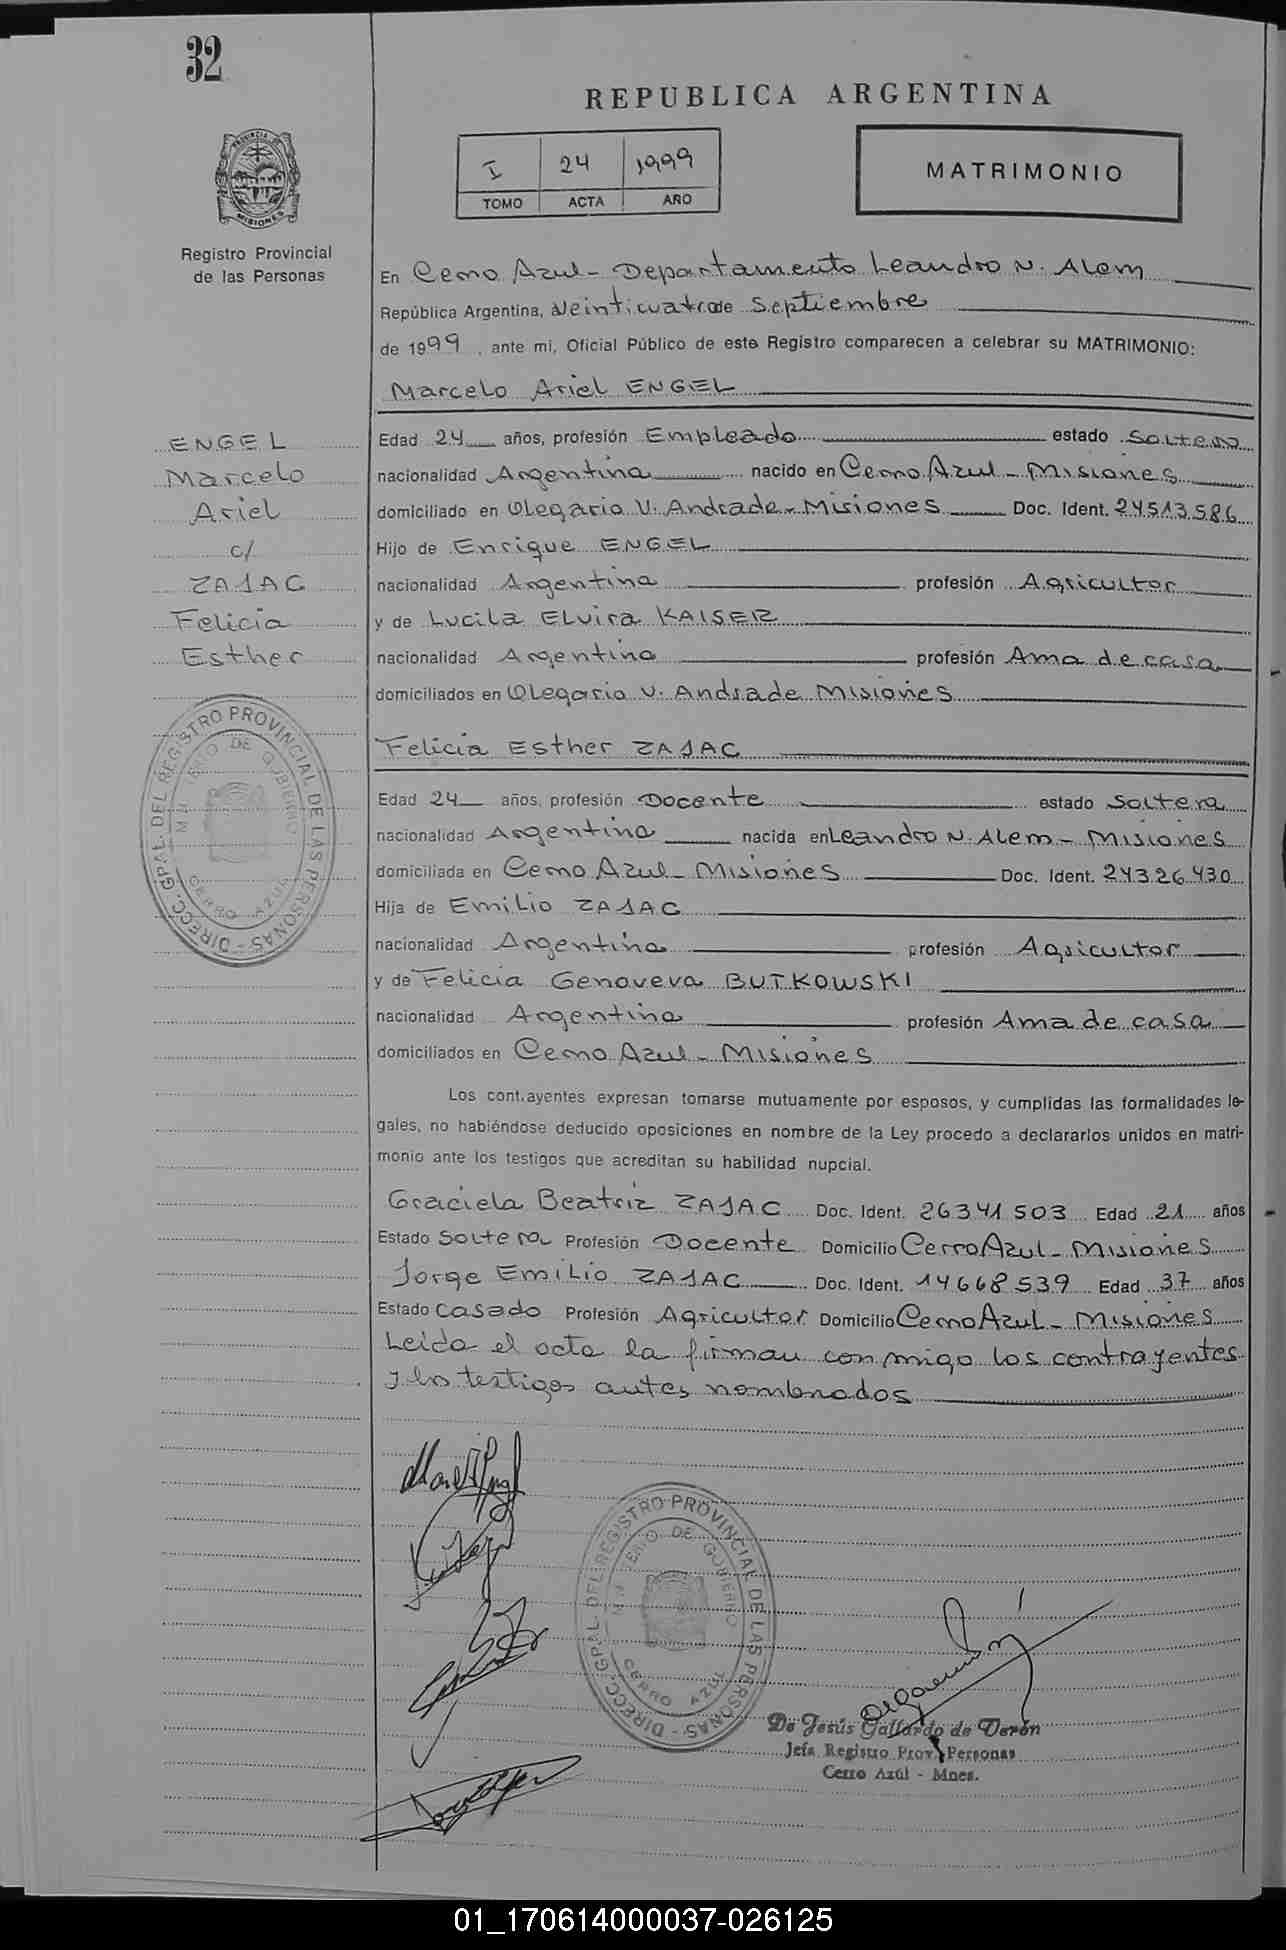 32
REPUBLICA ARGENTINA
I 24 1999
TOMO ACTA AÑO
MATRIMONIO
PROVINCIA DE
MISIONES
Registro Provincial
de las Personas
En Cerro Azul - Departamento Leandro N. Alem
República Argentina, Veinticuatro de Septiembre
de 1999, ante mi, Oficial Público de este Registro comparecen a celebrar su MATRIMONIO:
Marcelo Ariel ENGEL
ENGEL
Marcelo
Ariel
c/
ZAJAC
Felicia
Esther
Edad 24 años, profesión Empleado estado Soltero
nacionalidad Argentina nacido en Cerro Azul - Misiones
domiciliado en Olegario V. Andrade - Misiones Doc. Ident. 24513586
Hijo de Enrique ENGEL
nacionalidad Argentina profesión Agricultor
y de Lucila Elvira KAISER
nacionalidad Argentina profesión Ama de casa
domiciliados en Olegario V. Andrade Misiones
Felicia Esther ZAJAC
Edad 24 años, profesión Docente estado Soltera
nacionalidad Argentina nacida en Leandro N. Alem - Misiones
domiciliada en Cerro Azul - Misiones Doc. Ident. 24326430
Hija de Emilio ZAJAC
nacionalidad Argentina profesión Agricultor
y de Felicia Genoveva BUTKOWSKI
nacionalidad Argentina profesión Ama de casa
domiciliados en Cerro Azul - Misiones
DIRECC. GPAL. DEL REGISTRO PROVINCIAL DE LAS PERSONAS
DE GOBIERNO
CERRO AZUL
Los contrayentes expresan tomarse mutuamente por esposos, y cumplidas las formalidades le-
gales, no habiéndose deducido oposiciones en nombre de la Ley procedo a declararlos unidos en matri-
monio ante los testigos que acreditan su habilidad nupcial.
Graciela Beatriz ZAJAC Doc. Ident. 26341503 Edad 21 años
Estado Soltera Profesión Docente Domicilio Cerro Azul - Misiones
Jorge Emilio ZAJAC Doc. Ident. 14668539 Edad 37 años
Estado Casado Profesión Agricultor Domicilio Cerro Azul - Misiones
Leida el acta la firman conmigo los contrayentes
y los testigos antes nombrados
DIRECC. GPAL. DEL REGISTRO PROVINCIAL DE LAS PERSONAS
DE GOBIERNO
CERRO AZUL
De Jesús Gallardo de Verón
Jefa Registro Prov. Personas
Cerro Azúl - Mnes.
01_170614000037-026125